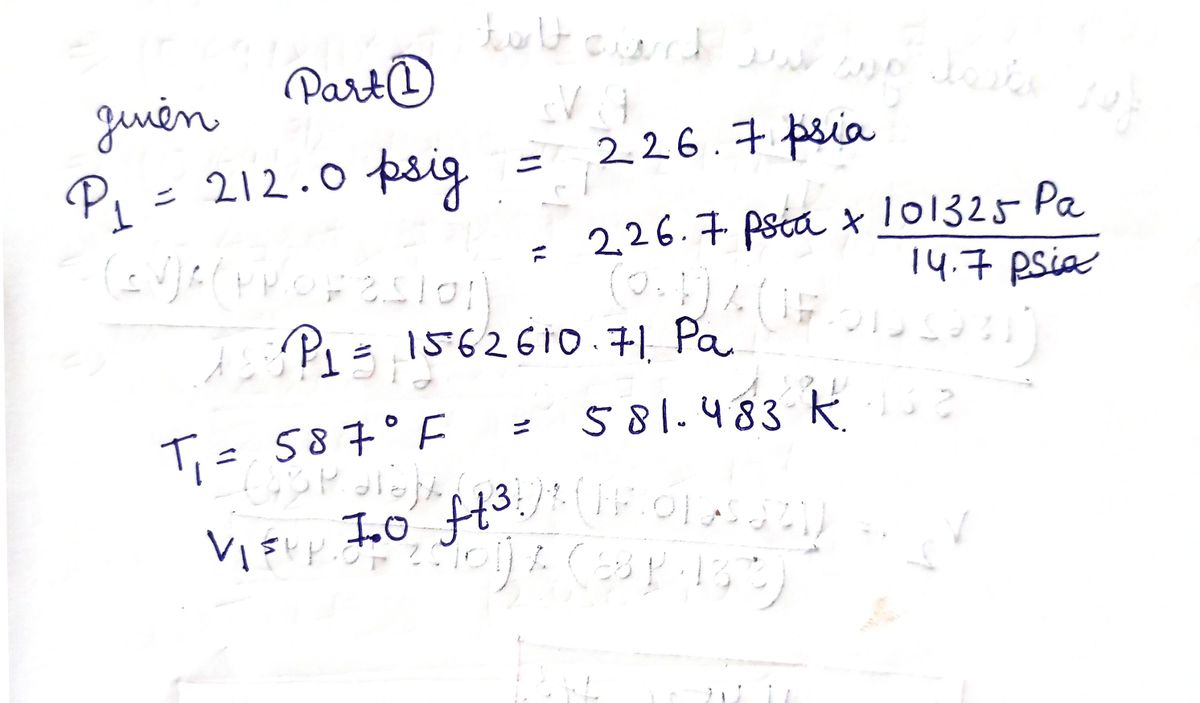 Part ①
given
P₁ = 212.0 psig = 226.7 psia
= 226.7 psia × 101325 Pa / 14.7 psia
P₁ = 1562610.71 Pa
T₁ = 587° F = 581.483 K.
V₁ = 7.0 ft³.